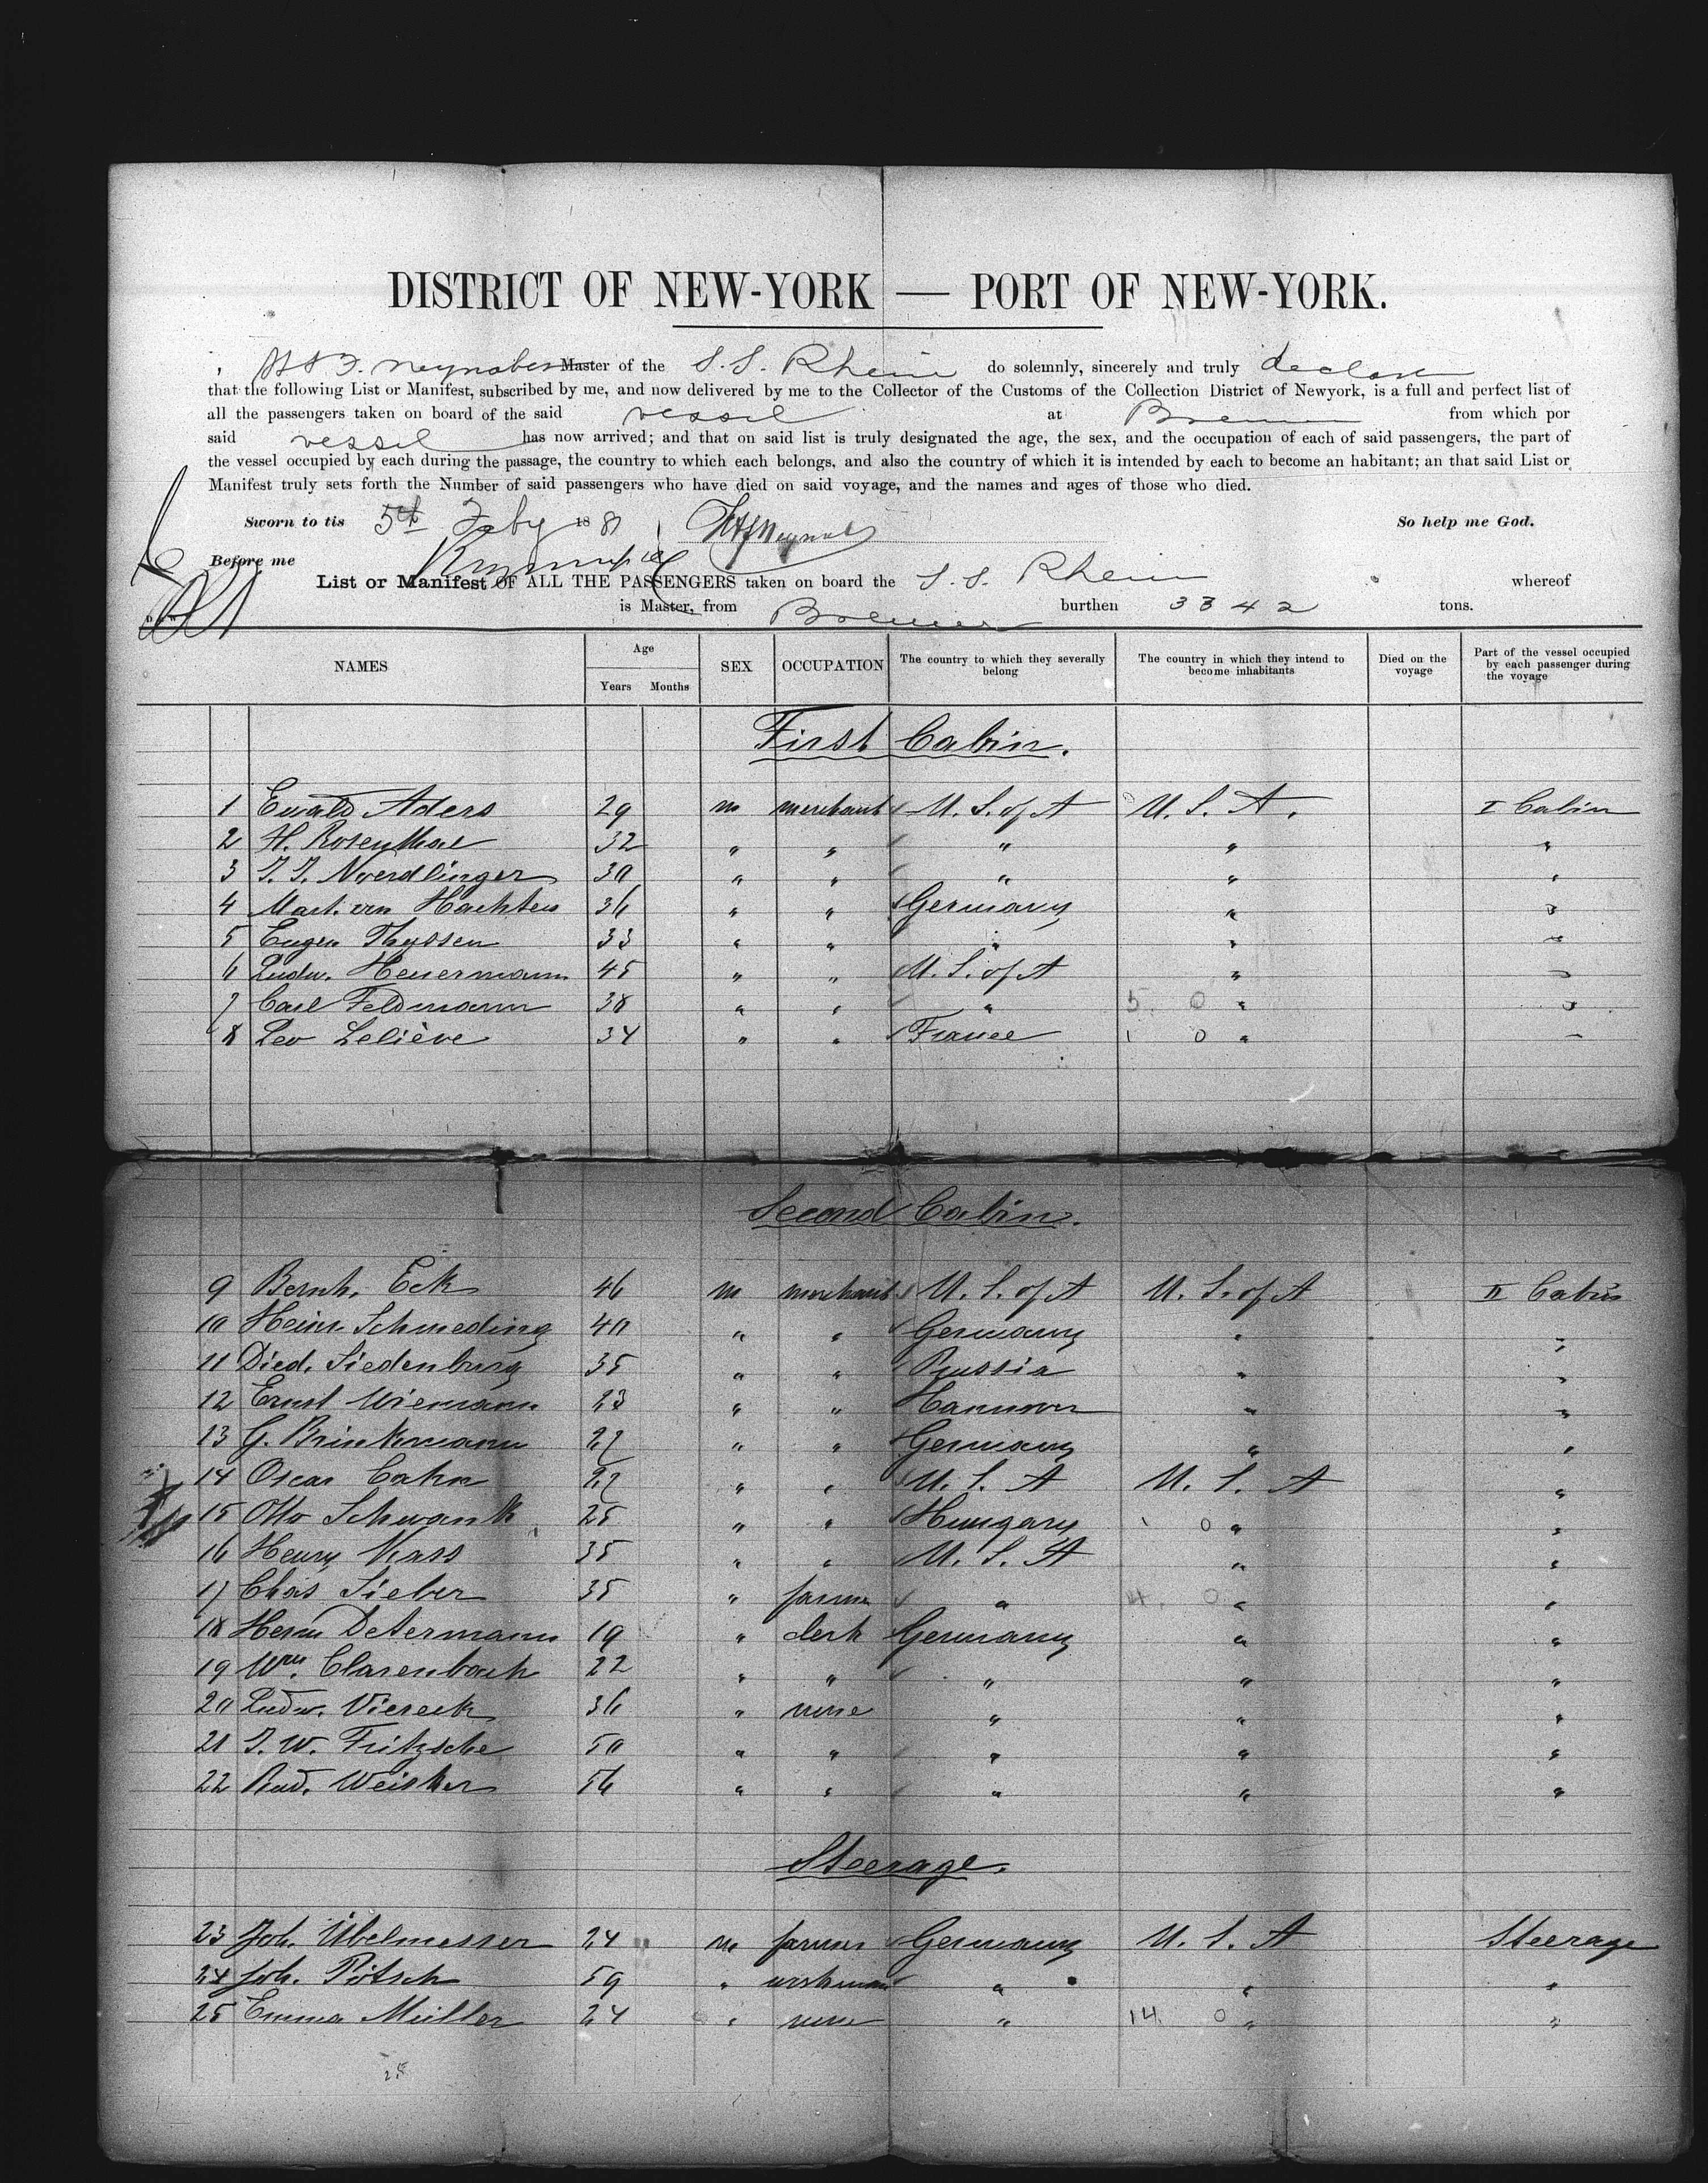 DISTRICT OF NEW-YORK — PORT OF NEW-YORK.
Master of the S.S. Rhein do solemnly, sincerely and truly declare
that the following List or Manifest, subscribed by me, and now delivered by me to the Collector of the Customs of the Collection District of Newyork, is a full and perfect list of
all the passengers taken on board of the said vessel at Bremen from which por
said vessel has now arrived; and that on said list is truly designated the age, the sex, and the occupation of each of said passengers, the part of
the vessel occupied by each during the passage, the country to which each belongs, and also the country of which it is intended by each to become an habitant; an that said List or
Manifest truly sets forth the Number of said passengers who have died on said voyage, and the names and ages of those who died.
Sworn to tis 5th Feby 188 So help me God.
Before me
List or Manifest OF ALL THE PASSENGERS taken on board the S.S. Rhein whereof
is Master, from Bremen burthen 3342 tons.
NAMES Age Years Months SEX OCCUPATION The country to which they severally belong The country in which they intend to become inhabitants Died on the voyage Part of the vessel occupied by each passenger during the voyage
First Cabin.
1 Ewald Aders 29 m merchant U. S. of A U. S. A. I Cabin
2 H. Rosenthal 32 " " " " "
3 J. J. Noerdlinger 30 " " " " "
4 Mart. von Hachten 36 " " Germany " "
5 Eugen Thyssen 33 " " " " "
6 Ludw. Heuermann 45 " " U. S. of A " "
7 Carl Feldmann 38 " " " 5. 0 " "
8 Leo Lelième 34 " " France 1 0 " "
Second Cabin.
9 Bernh. Eck 46 m merchant U. S. of A U. S. of A II Cabin
10 Heinr. Schmeding 40 " " Germany " "
11 Died. Siedenburg 35 " " Prussia " "
12 Ernst Wiemann 23 " " Hannover " "
13 G. Brinkmann 27 " " Germany " "
14 Oscar Cahn 27 " " U. S. A U. S. A "
15 Otto Schwank 25 " " Hungary 1 0 " "
16 Henry Kass 35 " " U. S. A " "
17 Chas Sieber 35 " farmer " 4. 0 " "
18 Herm Determann 19 " clerk Germany " "
19 Wm. Clarenbach 22 " " " " "
20 Ludw. Viereck 36 " none " " "
21 F. W. Fritzsche 50 " " " " "
22 Rud. Weisker 56 " " " " "
Steerage.
23 Joh. Übelmesser 24 m farmer Germany U. S. A Steerage
24 Joh. Pötsch 59 " workman " " "
25 Emma Müller 24 " none " 14. 0 " "
25